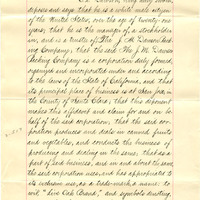 deposes and says, that he is a white male citizen
of the United States, over the age of twenty-one
years; that he is the manager of, a stockholder
in, and is a trustee of The J. M. Dawson Pack-
ing Company; that the said The J. M. Dawson
Packing Company is a corporation duly formed
organized and incorporated under and according
to the laws of the State of California, and that
its principal place of business is at San Jose, in
the County of Santa Clara; that this deponent
makes this affidavit and claim for and on be-
half of the said corporation; that the said cor-
poration produces and deals in canned fruits
and vegetables, and conducts the business of
producing and dealing in the same; that as a
part of said business, and in and about the same,
the said corporation uses, and has appropriated to
its exclusive use, as a trade-mark, a name: to
wit, "Live Oak Brand," and symbols